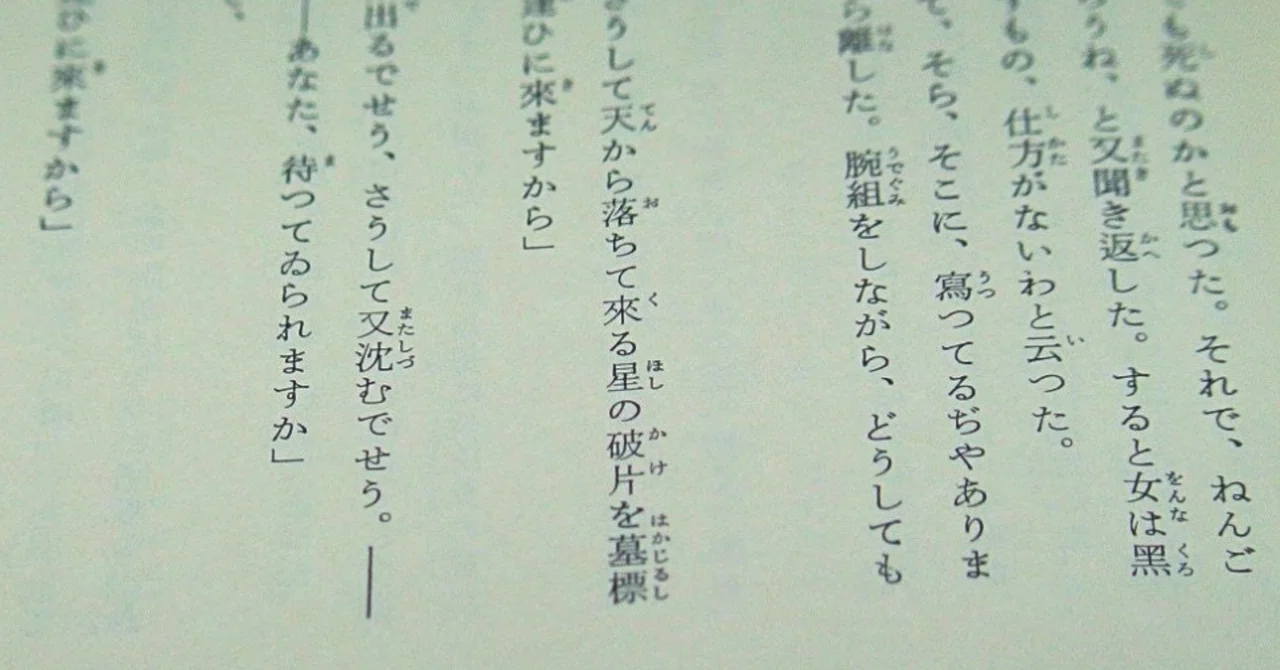 も死ぬのかと思つた。それで、ねんご
うね、と又聞き返した。すると女は黑
もの、仕方がないわと云つた。
て、そら、そこに、寫つてるぢやありま
ら離した。腕組をしながら、どうしても
さうして天から落ちて來る星の破片を墓標
逢ひに來ますから」
出るでせう、さうして又沈むでせう。――
――あなた、待つてゐられますか」
。
ひに來ますから」